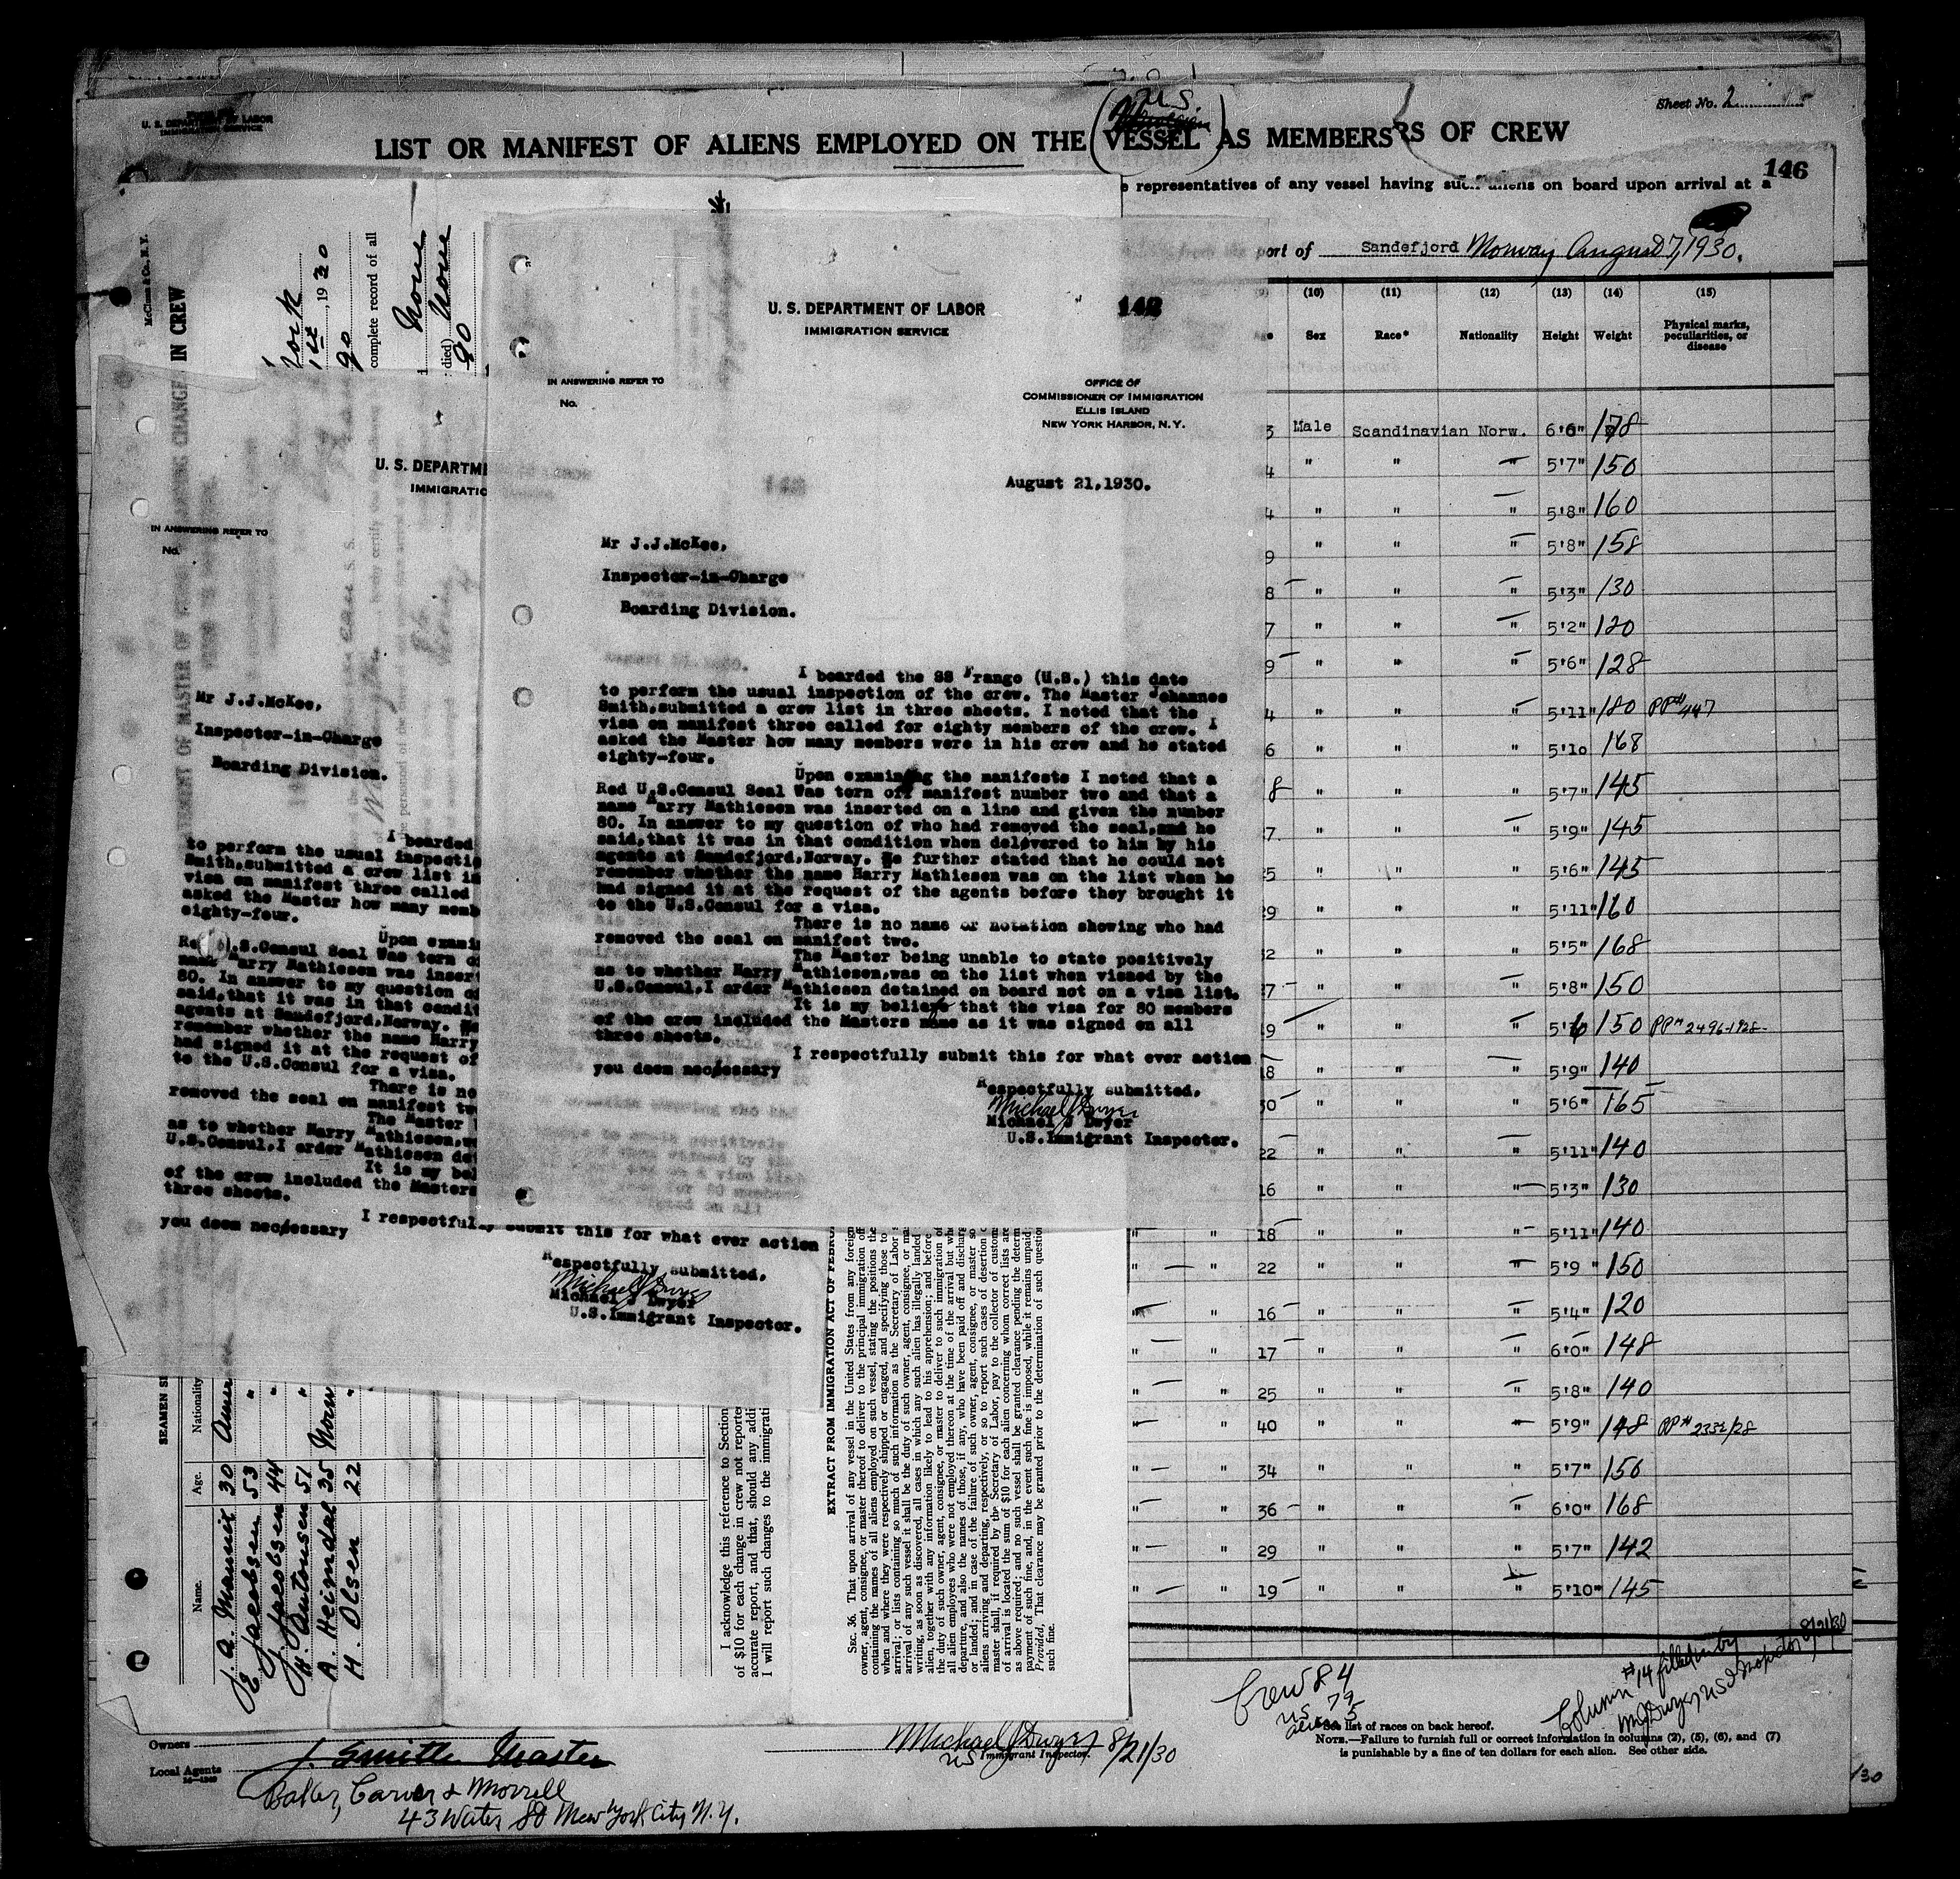 U. S. DEPARTMENT OF LABOR
IMMIGRATION SERVICE
U.S.
Sheet No. 2
LIST OR MANIFEST OF ALIENS EMPLOYED ON THE VESSEL AS MEMBERS RS OF CREW
146
e representatives of any vessel having such aliens on board upon arrival at a
port of Sandefjord Norway, August 7, 1930.
(10) (11) (12) (13) (14) (15)
Sex Race* Nationality Height Weight Physical marks, peculiarities, or disease
3 Male Scandinavian Norw. 6'6" 178
4 " " " 5'7" 150
4 " " " 5'8" 160
9 " " " 5'8" 158
8 " " " 5'3" 130
7 " " " 5'2" 120
9 " " " 5'6" 128
4 " " " 5'11" 180 PP# 447
6 " " " 5'10 168
8 " " " 5'7" 145
7 " " " 5'9" 145
25 " " " 5'6" 145
29 " " " 5'11" 160
32 " " " 5'5" 168
7 " " " 5'8" 150
19 " " " 5'6 150 PP# 2496-1928-
18 " " " 5'9" 140
30 " " " 5'6" 165
22 " " " 5'11" 140
16 " " " 5'3" 130
" " 18 " " " 5'11" 140
" " 22 " " " 5'9 " 150
" " 16 " " " 5'4" 120
" " 17 " " " 6'0" 148
" " 25 " " " 5'8" 140
" " 40 " " " 5'9" 148 PP# 2332/28
" " 34 " " " 5'7" 156
" " 36 " " " 6'0" 168
" " 29 " " " 5'7" 142
" " 19 " " " 5'10" 145
Crew 84
US 79
aliens 5
Column #14 filled in by
M J Dwyer US Inspector 8/21/30
*See list of races on back hereof.
NOTE.—Failure to furnish full or correct information in columns (2), (5), (6), and (7)
is punishable by a fine of ten dollars for each alien. See other side.
Owners
Local Agents
J. Smith Master
Baker, Carver & Morrell
43 Water St New York City N.Y.
Michael J Dwyer 8/21/30
US Immigrant Inspector.
/30
142
U. S. DEPARTMENT OF LABOR
IMMIGRATION SERVICE
IN ANSWERING REFER TO
No.
OFFICE OF
COMMISSIONER OF IMMIGRATION
ELLIS ISLAND
NEW YORK HARBOR, N.Y.
August 21,1930.
Mr J.J.McKee,
Inspector-in-Charge
Boarding Division.
I boarded the SS Frango (U.S.) this date
to perform the usual inspection of the crew. The Master Johannes
Smith,submitted a crew list in three sheets. I noted that the
visa on manifest three called for eighty members of the crew. I
asked the Master how many members were in his crew and he stated
eighty-four.
Upon examining the manifests I noted that a
Red U.S.Consul Seal Was torn off manifest number two and that a
name Harry Mathiesen was inserted on a line and given the number
80. In answer to my question of who had removed the seal,and he
said,that it was in that condition when delevered to him by his
agents at Sandefjord,Norway. He further stated that he could not
remember whether the name Harry Mathiesen was on the list when he
had signed it at the request of the agents before they brought it
to the U.S.Consul for a visa.
There is no name or notation showing who had
removed the seal on manifest two.
The Master being unable to state positively
as to whether Harry Mathiesen,was on the list when viewed by the
U.S.Consul,I order Mathiesen detained on board not on a visa list.
It is my believe that the visa for 80 members
of the crew included the Masters name as it was signed on all
three sheets.
I respectfully submit this for what ever action
you deem necessary
Respectfully submitted,
Michael J Dwyer
Michael J Dwyer
U.S.Immigrant Inspector.
U. S. DEPARTME
IMMIGRATIO
IN ANSWERING REFER TO
No.
Mr J.J.McKee,
Inspector-in-Charge
Boarding Division.
I boarded
to perform the usual inspectio
Smith,submitted a crew list in
visa on manifest three called
asked the Master how many memb
eighty-four.
Upon examin
Re .S.Consul Seal Was torn o
name Harry Mathiesen was inser
80. In answer to my question o
said,that it was in that condit
agents at Sandefjord,Norway. He
remember whether the name Harry
had signed it at the request of
to the U.S.Consul for a visa.
There is no
removed the seal on manifest tw
The Master
as to whether Harry Mathiesen,w
U.S.Consul,I order Mathiesen det
It is my bel
of the crew included the Masters
three sheets.
I respectfully submit this for what ever action
you deem necessary
Respectfully submitted,
Michael J Dwyer
Michael J Dwyer
U.S.Immigrant Inspector.
McClean & Co., N.Y.
STATEMENT OF MASTER OF CHANGES IN CREW
York
1st , 1930
go
complete record of all
None
died) None
go
Name. Age. Nationality
J. A. Mannix 30 Amer
E. Jacobsen 53 "
G. Jacobsen 44 "
H. Antonsen 51 "
A. Heimdal 35 Norw
H. Olsen 22 "
I acknowledge this reference to Section
of $10 for each change in crew not reporte
accurate report, and that, should any addi
I will report such changes to the immigrati
EXTRACT FROM IMMIGRATION ACT OF FEBRU
SEC. 36. That upon arrival of any vessel in the United States from any foreign
owner, agent, consignee, or master thereof to deliver to the principal immigration off
containing the names of all aliens employed on such vessel, stating the positions the
when and where they were respectively shipped or engaged, and specifying those to
arrival; or lists containing so much of such information as the Secretary of Labor
arrival of any such vessel it shall be the duty of such owner, agent, consignee, or ma
writing, as soon as discovered, all cases in which any such alien has illegally landed
alien, together with any information likely to lead to his apprehension; and before
the duty of such owner, agent, consignee, or master to deliver to such immigration o
all alien employees who were not employed thereon at the time of the arrival but wh
departure, and also the names of those, if any, who have been paid off and discharg
or landed; and in case of the failure of such owner, agent, consignee, or master so
aliens arriving and departing, respectively, or so to report such cases of desertion o
master shall, if required by the Secretary of Labor, pay to the collector of customs
of arrival is located the sum of $10 for each alien concerning whom correct lists are
as above required; and no such vessel shall be granted clearance pending the determ
payment of such fine, and, in the event such fine is imposed, while it remains unpaid
Provided, That clearance may be granted prior to the determination of such question
such fine.